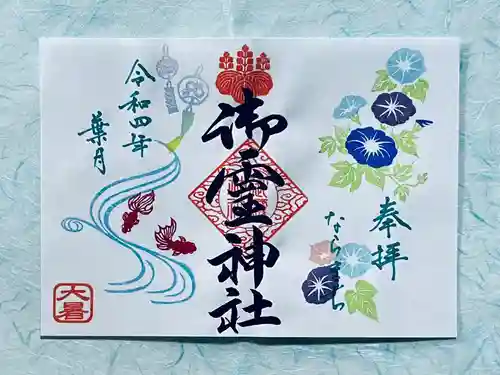 奉拝
ならまち
御霊神社
令和四年
葉月
大暑